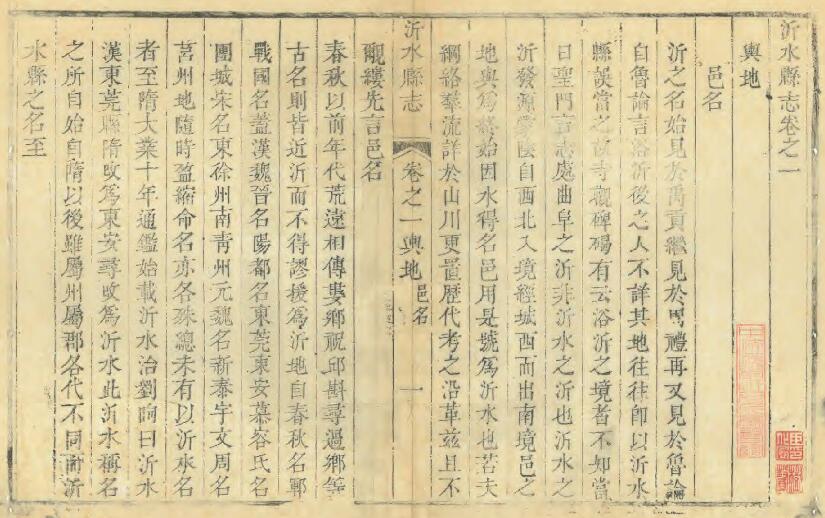 沂水縣志卷之一
輿地
邑名
沂之名始見於禹貢繼見於周禮再又見於魯論
自魯論言浴沂後之人不詳其地往往卽以沂水
縣誤當之故寺觀碑碣有云浴沂之境者不知當
日聖門言志處曲阜之沂非沂水之沂也沂水之
沂發源蒙陰自西北入境經城西而出南境邑之
地輿爲終始因水得名邑用是號爲沂水也若夫
綱絡羣流詳於山川更置歷代考之沿革茲且不
沂水縣志
卷之一輿地
邑名
一
覼縷先言邑名
春秋以前年代荒遠相傳婁鄉祝邱斟尋過鄉等
古名則皆近沂而不得謬援爲沂地自春秋名鄆
戰國名蓋漢魏晉名陽都名東莞東安慕容氏名
團城宋名東徐州南青州元魏名新泰宇文周名
莒州地隨時盈縮命名亦各殊總未有以沂水名
者至隋大業十年通鑑始載沂水治劉昫曰沂水
漢東莞縣隋改爲東安尋改爲沂水此沂水稱名
之所自始自隋以後雖屬州屬郡各代不同而沂
水縣之名至